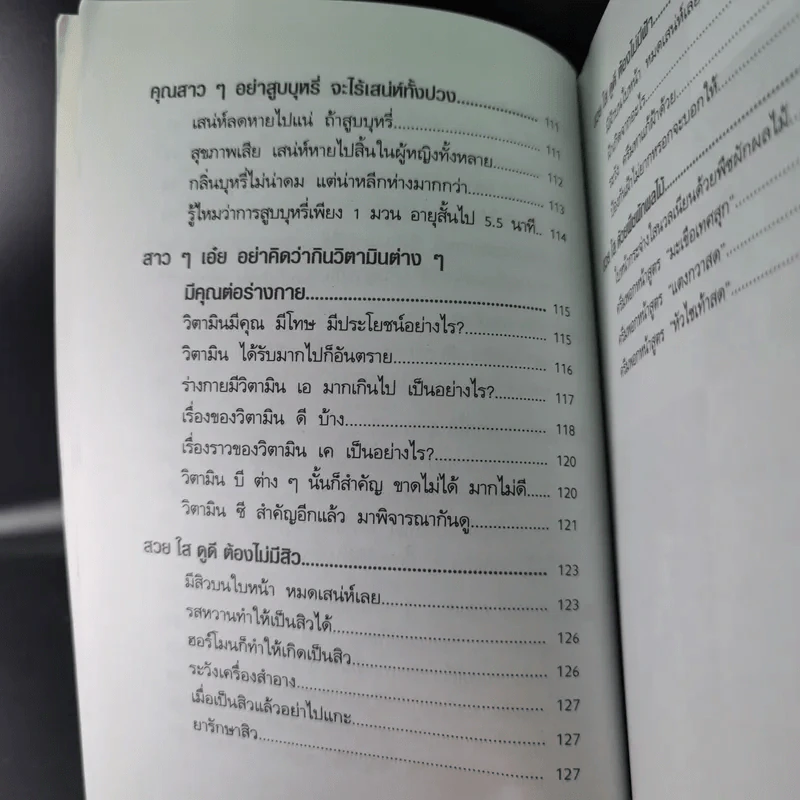 คุณสาว ๆ อย่าสูบบุหรี่ จะไร้เสน่ห์ทั้งปวง........................ 111
เสน่ห์ลดหายไปแน่ ถ้าสูบบุหรี่........................ 111
สุขภาพเสีย เสน่ห์หายไปสิ้นในผู้หญิงทั้งหลาย........... 112
กลิ่นบุหรี่ไม่น่าดม แต่น่าหลีกห่างมากกว่า............... 113
รู้ไหมว่าการสูบบุหรี่เพียง 1 มวน อายุสั้นไป 5.5 นาที.. 114
สาว ๆ เอ๋ย อย่าคิดว่ากินวิตามินต่าง ๆ
มีคุณต่อร่างกาย........................ 115
วิตามินมีคุณ มีโทษ มีประโยชน์อย่างไร?............... 115
วิตามิน ได้รับมากไปก็อันตราย........................ 116
ร่างกายมีวิตามิน เอ มากเกินไป เป็นอย่างไร?........... 117
เรื่องของวิตามิน ดี บ้าง........................ 118
เรื่องราวของวิตามิน เค เป็นอย่างไร?.................. 120
วิตามิน บี ต่าง ๆ นั้นก็สำคัญ ขาดไม่ได้ มากไม่ดี...... 120
วิตามิน ซี สำคัญอีกแล้ว มาพิจารณากันดู............... 121
สวย ใส ดูดี ต้องไม่มีสิว........................ 123
มีสิวบนใบหน้า หมดเสน่ห์เลย........................ 123
รสหวานทำให้เป็นสิวได้........................ 126
ฮอร์โมนก็ทำให้เกิดเป็นสิว........................ 126
ระวังเครื่องสำอาง........................ 127
เมื่อเป็นสิวแล้วอย่าไปแกะ........................ 127
ยารักษาสิว........................ 127
สวย ใส ดูดี ต้องไม่มีฝ้า
มีฝ้าบนใบหน้า หมดเสน่ห์เลย
ป้องกันฝ้าไม่ยากหรอกจะบอกให้
ใบหน้ากระจ่างใสนวลเนียนด้วยพืชผักผลไม้
ครีมพอกหน้าสูตร "มะเขือเทศสุก"
ครีมพอกหน้าสูตร "แตงกวาสด"
ครีมพอกหน้าสูตร "หัวไชเท้าสด"